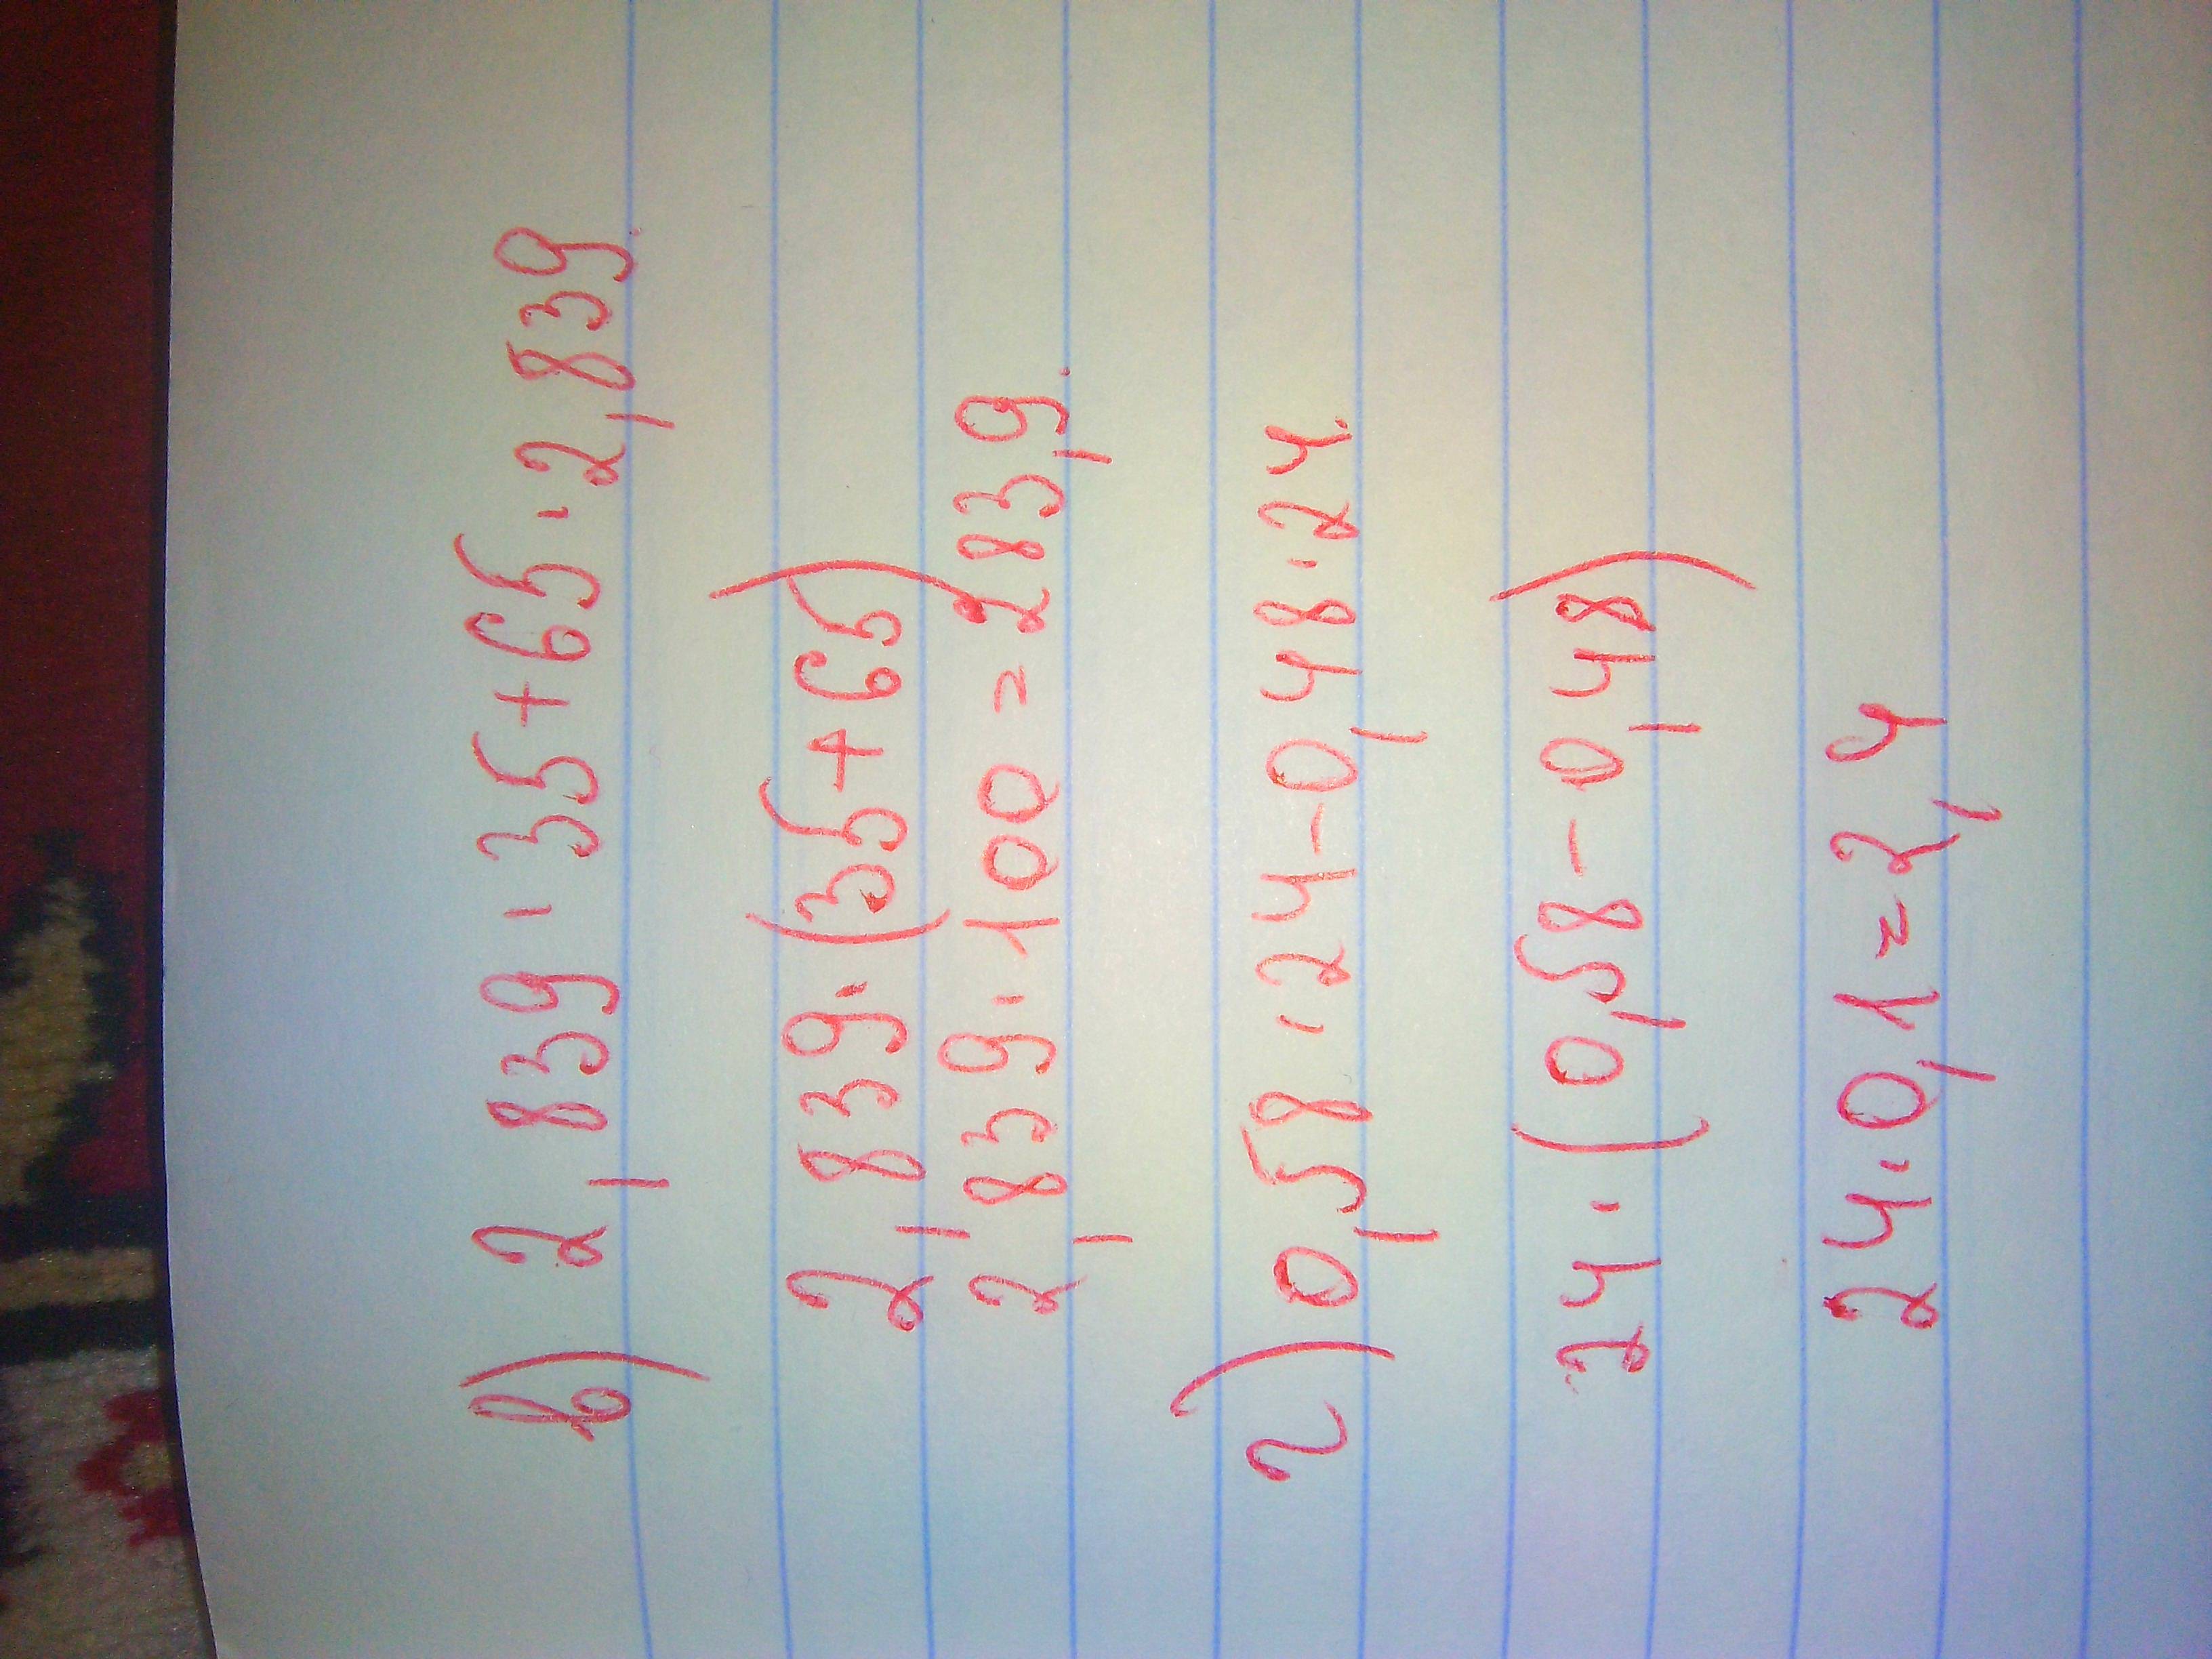 в) 2,839 · 35 + 65 · 2,839.
2,839 · (35 + 65)
2,839 · 100 = 283,9.
г) 0,58 · 24 - 0,48 · 24.
24 · (0,58 - 0,48)
24 · 0,1 = 2,4